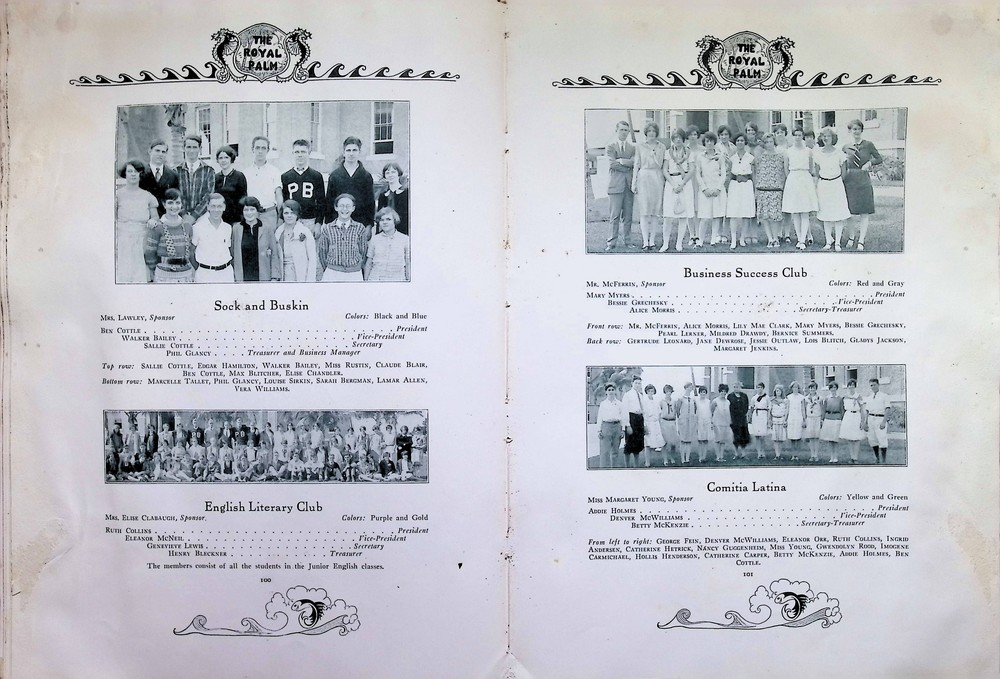 THE
ROYAL
PALM
PB
Sock and Buskin
Mrs. Lawley, Sponsor Colors: Black and Blue
Ben Cottle . . . . . . . . . . . . . . . . . . . . . . . . President
Walker Bailey . . . . . . . . . . . . . . . . . . Vice-President
Sallie Cottle . . . . . . . . . . . . . . . . Secretary
Phil Glancy . . . . Treasurer and Business Manager
Top row: Sallie Cottle, Edgar Hamilton, Walker Bailey, Miss Rustin, Claude Blair,
Ben Cottle, Max Blitcher, Elise Chandler.
Bottom row: Marcelle Talley, Phil Glancy, Louise Sirkin, Sarah Bergman, Lamar Allen,
Vera Williams.
English Literary Club
Mrs. Elise Clabaugh, Sponsor. Colors: Purple and Gold
Ruth Collins . . . . . . . . . . . . . . . . . . . . . . . . President
Eleanor McNeil . . . . . . . . . . . . . . . . . . Vice-President
Genevieve Lewis . . . . . . . . . . . . . . . Secretary
Henry Bleckner . . . . . . . . . . Treasurer
The members consist of all the students in the Junior English classes.
100
THE
ROYAL
PALM
Business Success Club
Mr. McFerrin, Sponsor Colors: Red and Gray
Mary Myers . . . . . . . . . . . . . . . . . . . . . . . . President
Bessie Grechesky . . . . . . . . . . . . . . . . Vice-President
Alice Morris . . . . . . . . . . . . Secretary-Treasurer
Front row: Mr. McFerrin, Alice Morris, Lily Mae Clark, Mary Myers, Bessie Grechesky,
Pearl Lerner, Mildred Drawdy, Bernice Summers.
Back row: Gertrude Leonard, Jane Dewrose, Jessie Outlaw, Lois Blitch, Gladys Jackson,
Margaret Jenkins.
Comitia Latina
Miss Margaret Young, Sponsor Colors: Yellow and Green
Addie Holmes . . . . . . . . . . . . . . . . . . . . . . . . President
Denver McWilliams . . . . . . . . . . . . . . . Vice-President
Betty McKenzie . . . . . . . . . . . Secretary-Treasurer
From left to right: George Fein, Denver McWilliams, Eleanor Orr, Ruth Collins, Ingrid
Andersen, Catherine Hetrick, Nancy Guggenheim, Miss Young, Gwendolyn Rood, Imogene
Carmichael, Hollis Henderson, Catherine Carper, Betty McKenzie, Addie Holmes, Ben
Cottle.
101